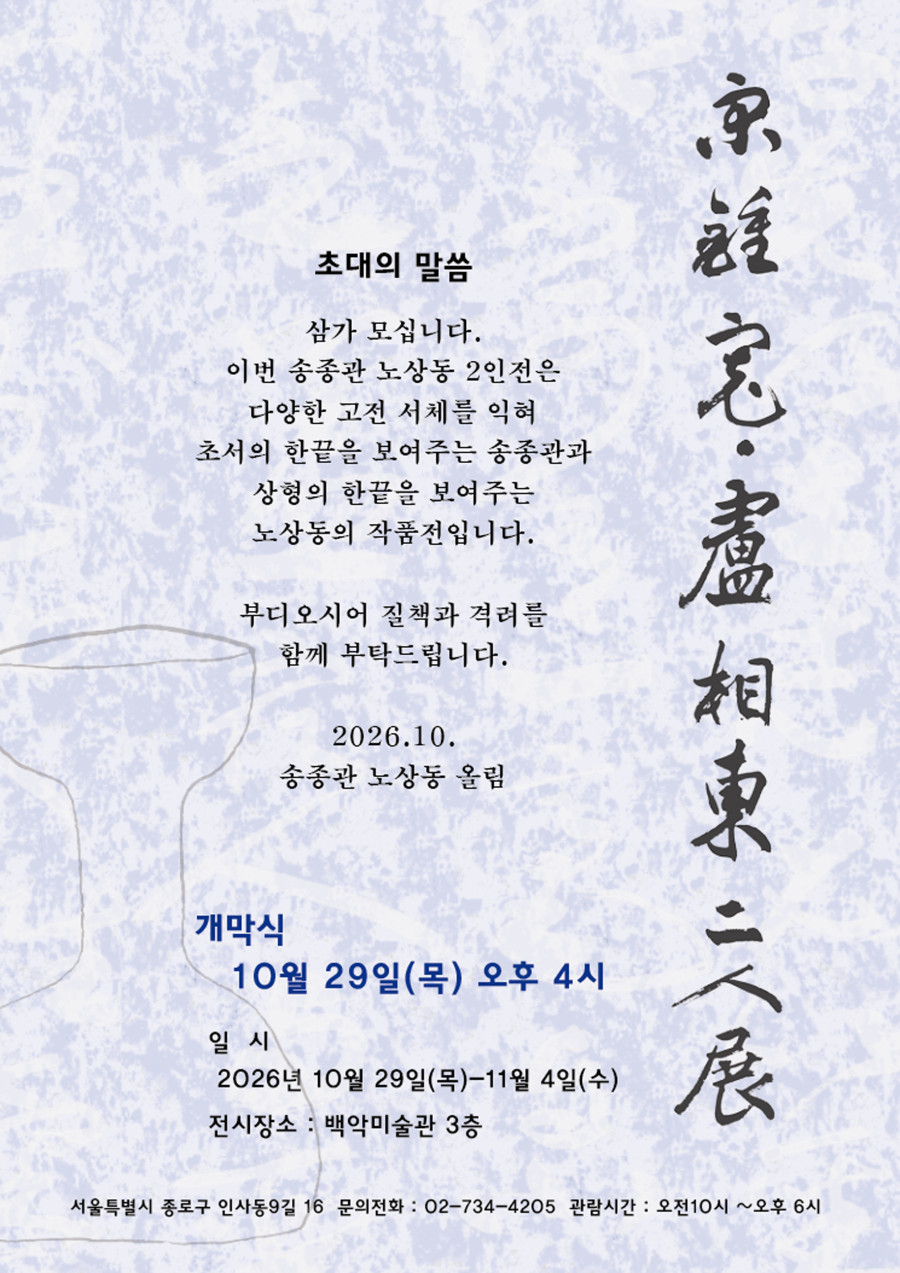 宋鍾寬·盧相東二人展
초대의 말씀
삼가 모십니다.
이번 송종관 노상동 2인전은
다양한 고전 서체를 익혀
초서의 한끝을 보여주는 송종관과
상형의 한끝을 보여주는
노상동의 작품전입니다.
부디오시어 질책과 격려를
함께 부탁드립니다.
2026.10.
송종관 노상동 올림
개막식
10월 29일(목) 오후 4시
일 시
2026년 10월 29일(목)-11월 4일(수)
전시장소 : 백악미술관 3층
서울특별시 종로구 인사동9길 16 문의전화 : 02-734-4205 관람시간 : 오전10시 ~오후 6시